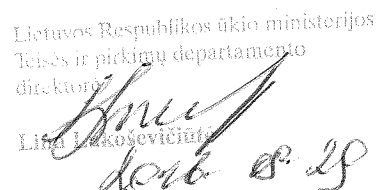 Lietuvos Respublikos ūkio ministerijos
Teisės ir pirkimų departamento
direktorė
Lina Lukoševičiūtė